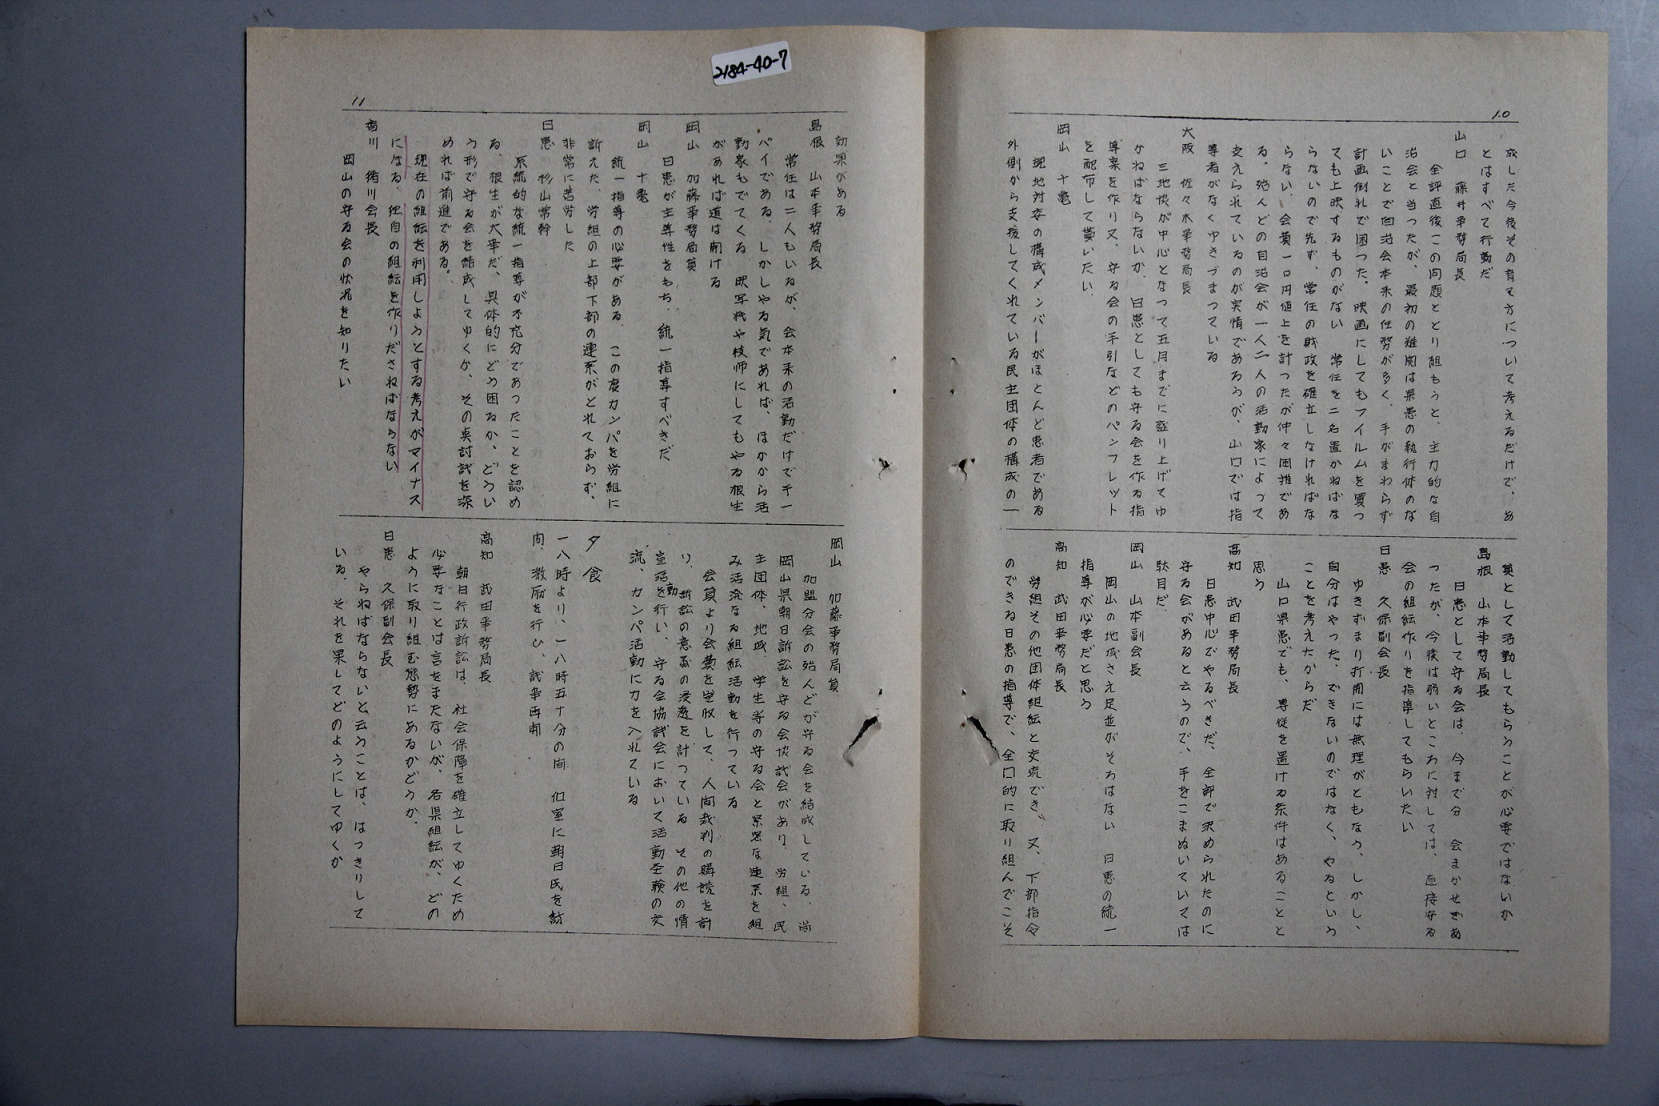 2184-40-7
10
成した今後その育て方について考えるだけで、あ
とはすべて行動だ
山口 藤井事務局長
全評直後この問題ととり組もうと、主力的な自
治会と当つたが、最初の難関は県患の執行体のな
いことで自治会本来の仕事が多く、手がまわらず
計画倒れで困つた。映画にしてもフイルムを買つ
ても上映するものがない 常任を二名置かねばな
らないので先ず、常任の財政を確立しなければな
らない、会費一〇円値上を計つたが仲々困難であ
る、殆んどの自治会が一人二人の活動家によつて
支えられているのが実情であろうが、山口では指
導者がなくゆきづまつている
大阪 佐々木事務局長
三地協が中心となつて五月までに盛り上げてゆ
かねばならないが、日患としても守る会を作る指
導案を作り又、守る会の手引などのパンフレツト
を配布して貰いたい
岡山 十亀
現地対策の構成メンバーがほとんど患者である
外側から支援してくれている民主団体の構成の一
員として活動してもらうことが必要ではないか
島根 山本事務局長
日患として守る会は、今まで分 会まかせであ
つたが、今後は弱いところに対しては、直接守る
会の組織作りを指導してもらいたい
日患 久保副会長
ゆきずまり打開には無理がともなう、しかし、
自分はやつた、できないのではなく、やるという
ことを考えたからだ
山口県患でも、専従を置ける条件はあることと
思う
高知 武田事務局長
日患中心でやるべきだ、全部で決められたのに
守る会があると云うので、手をこまぬいていては
駄目だ、
岡山 山本副会長
岡山の地域さえ足並がそろはない 日患の統一
指導が必要だと思う
高知 武田事務局長
労組その他団体組織と交流でき、又、下部指令
のできる日患の指導で、全国的に取り組んでこそ
11
効果がある
島根 山本事務局長
常任は二人もいるが、会本来の活動だけで手一
パイである、しかしやる気であれば、ほかから活
動家もでてくる 映写機や技師にしてもやる根生
があれば道は開ける
岡山 加藤事務局員
日患が主導性をもち、統一指導すべきだ
岡山 十亀
統一指導の必要がある、この度カンパを労組に
訴えた、労組の上部下部の連系がとれておらず、
非常に苦労した
日患 杉山常幹
系統的な統一指導が不充分であつたことを認め
る、根生が大事だ、具体的にどう困るか、どうい
う形で守る会を結成してゆくか、その点討議を深
めれば前進である。
現在の組織を利用しようとする考えがマイナス
になる、独自の組織を作りださねばならない
香川 猪川会長
岡山の守る会の状況を知りたい
岡山 加藤事務局員
加盟分会の殆んどが守る会を結成している、尚
岡山県朝日訴訟を守る会協議会があり、労組、民
主団体、地域、学生等の守る会と緊密な連系を組
み活溌なる組織活動を行つている
会員より会費を徴収して、人間裁判の購読を計
り、訴訟の意義の浸透を計つている その他の情
宣活動を行い、守る会協議会において活動経験の交
流、カンパ活動に力を入れている
夕食
一八時より、一八時五十分の間 個室に朝日氏を訪
問、激励を行ひ、議事再開、
高知 武田事務局長
朝日行政訴訟は、社会保障を確立してゆくため
必要なことは言をまたないが、各県組織が、どの
ように取り組む態勢にあるかどうか、
日患 久保副会長
やらねばならないと云うことは、はつきりして
いる、それを果してどのようにしてゆくか